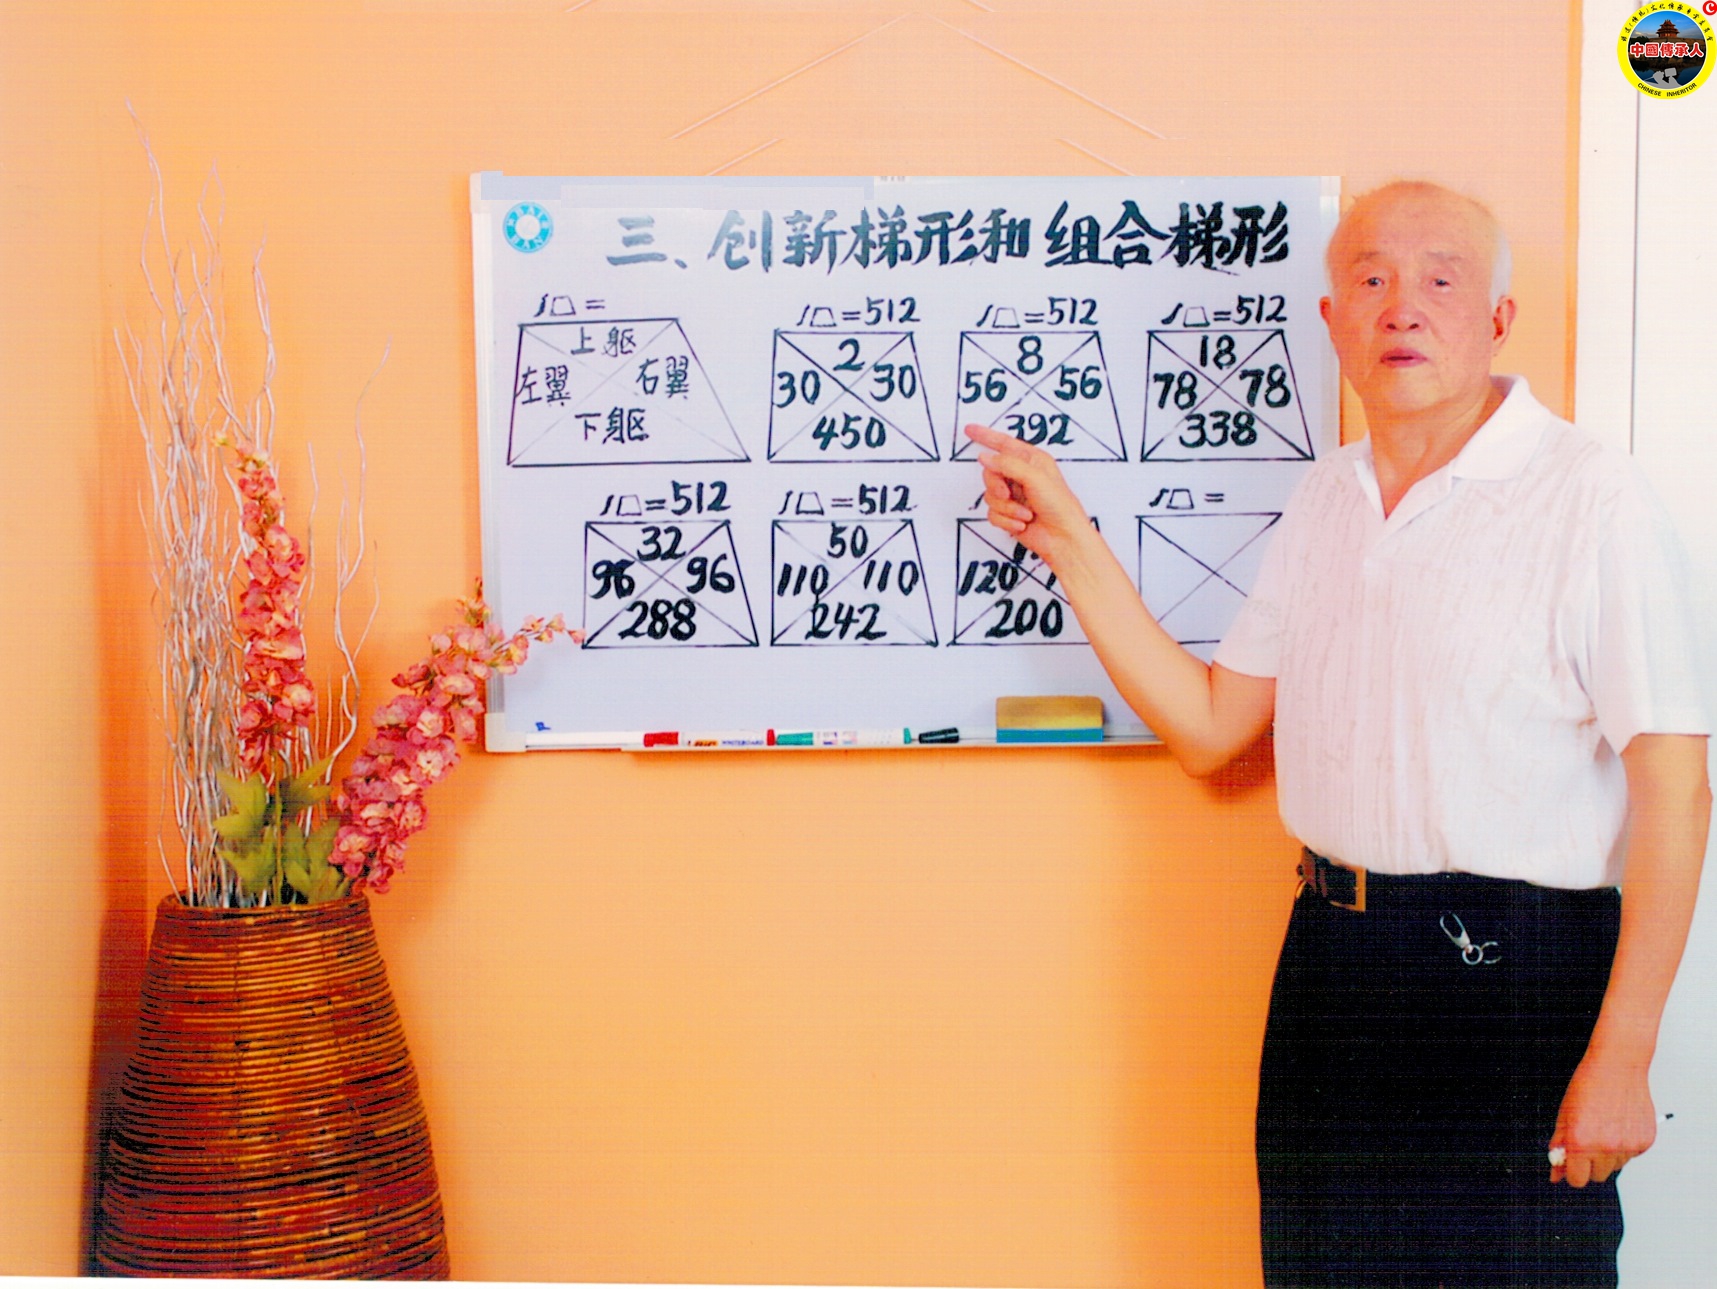 中國傳承人
CHINESE INHERITOR
三、创新梯形和组合梯形
S⏢=
上躯
左翼 右翼
下躯
S⏢=512
2
30 30
450
S⏢=512
8
56 56
392
S⏢=512
18
78 78
338
S⏢=512
32
96 96
288
S⏢=512
50
110 110
242
120
200
S⏢=
WHITEBOARD